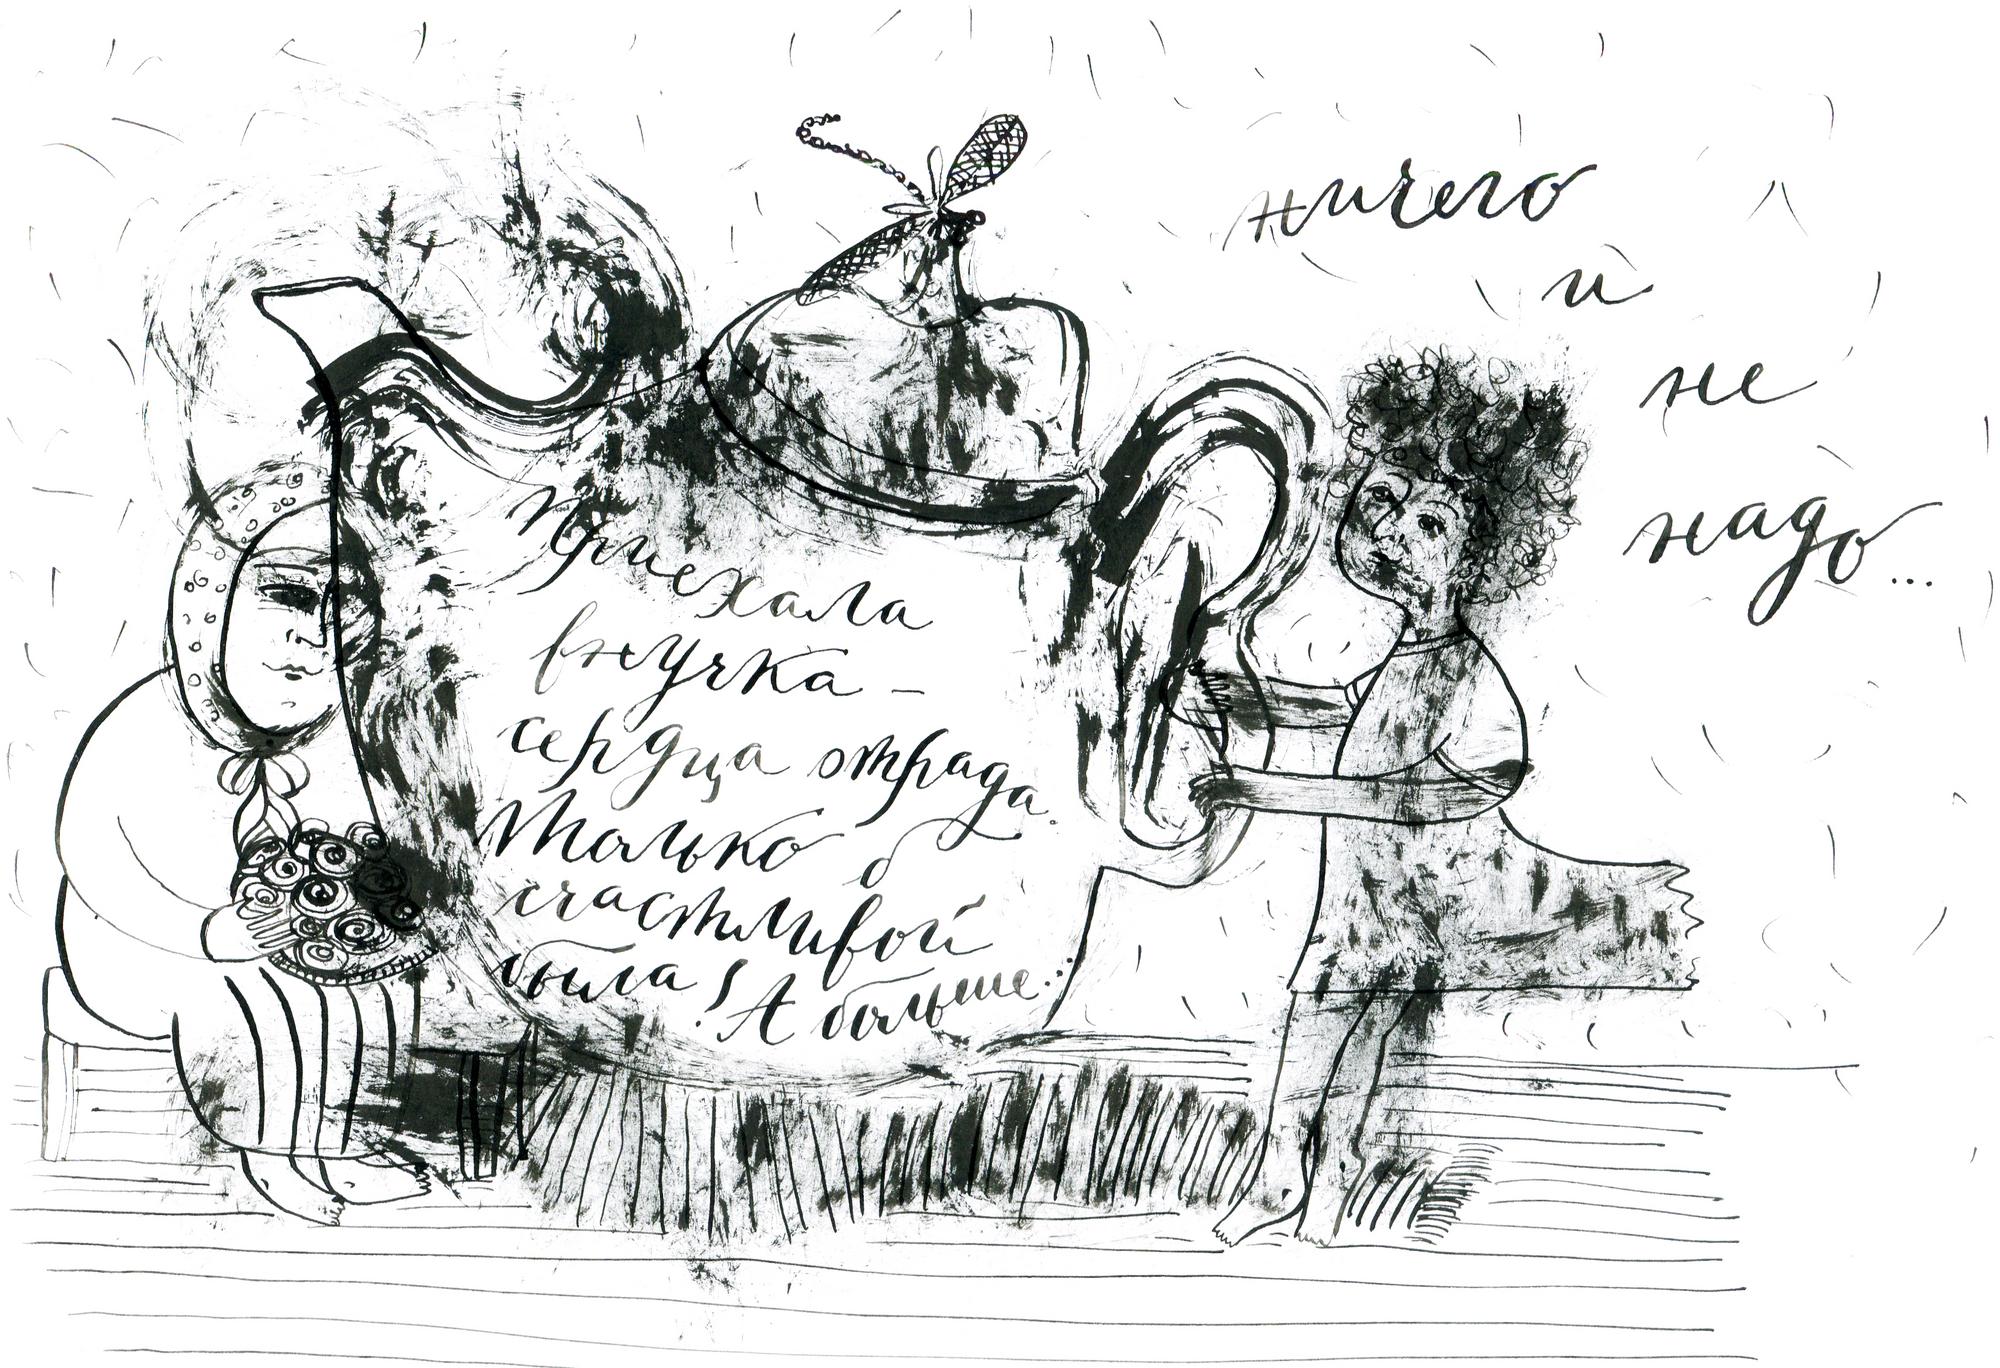 Приехала
внучка –
сердца отрада.
Только б
счастливой
была! А больше...
ничего
и
не
надо...